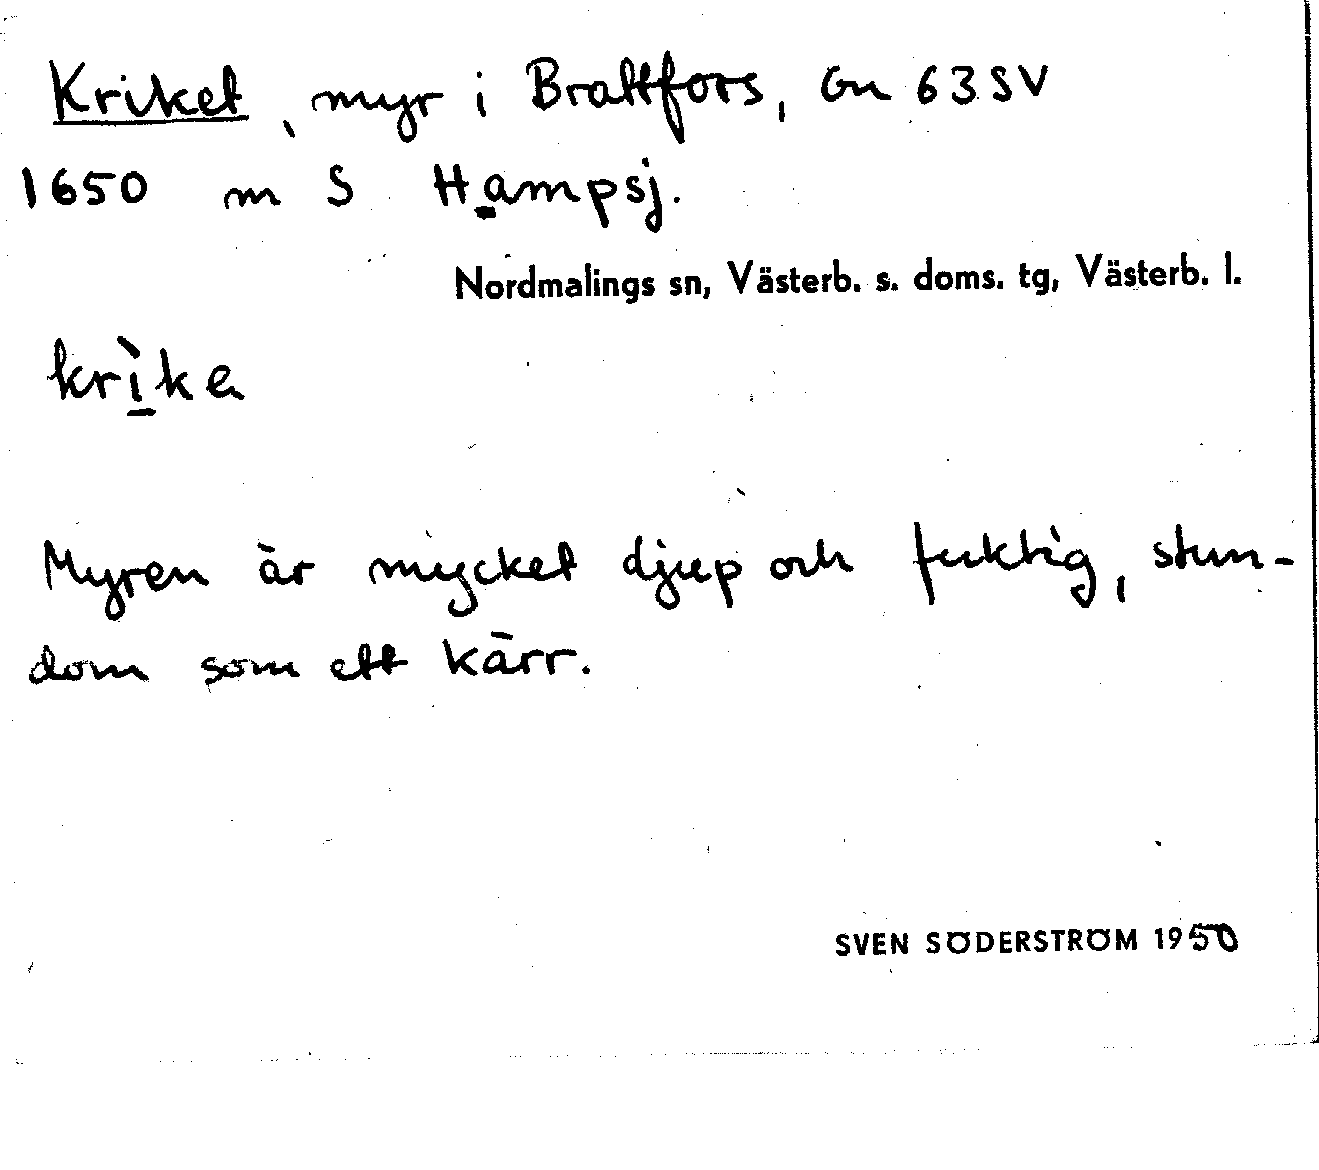 Kriket, myr i Brattfors, Gn 63 SV
1650 m S Hampsj.
Nordmalings sn, Västerb. s. doms. tg, Västerb. l.
krìka
Myren är mycket djup och fuktig, stun-
dom som ett kärr.
SVEN SÖDERSTRÖM 1950